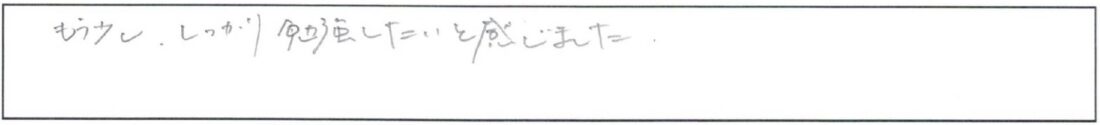 もう少し、しっかり勉強したいと感じました.